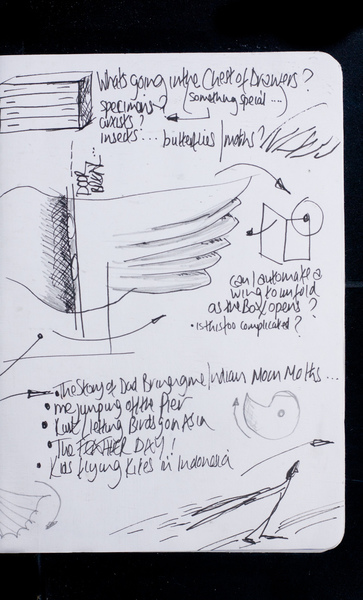 Whats going in the Chest of Drawers?
(something special...)
specimens?
insects... butterflies/moths?
DOOR
can I automate a
wing to unfold
as the Box opens?
• is this too complicated?
• The Story of Dad Bringing me Indian Moon Moths...
• me jumping off the Pier
• Kurt letting Birds go in Asia
• The FEATHER DAY!
• Kids flying Kites in Indonesia